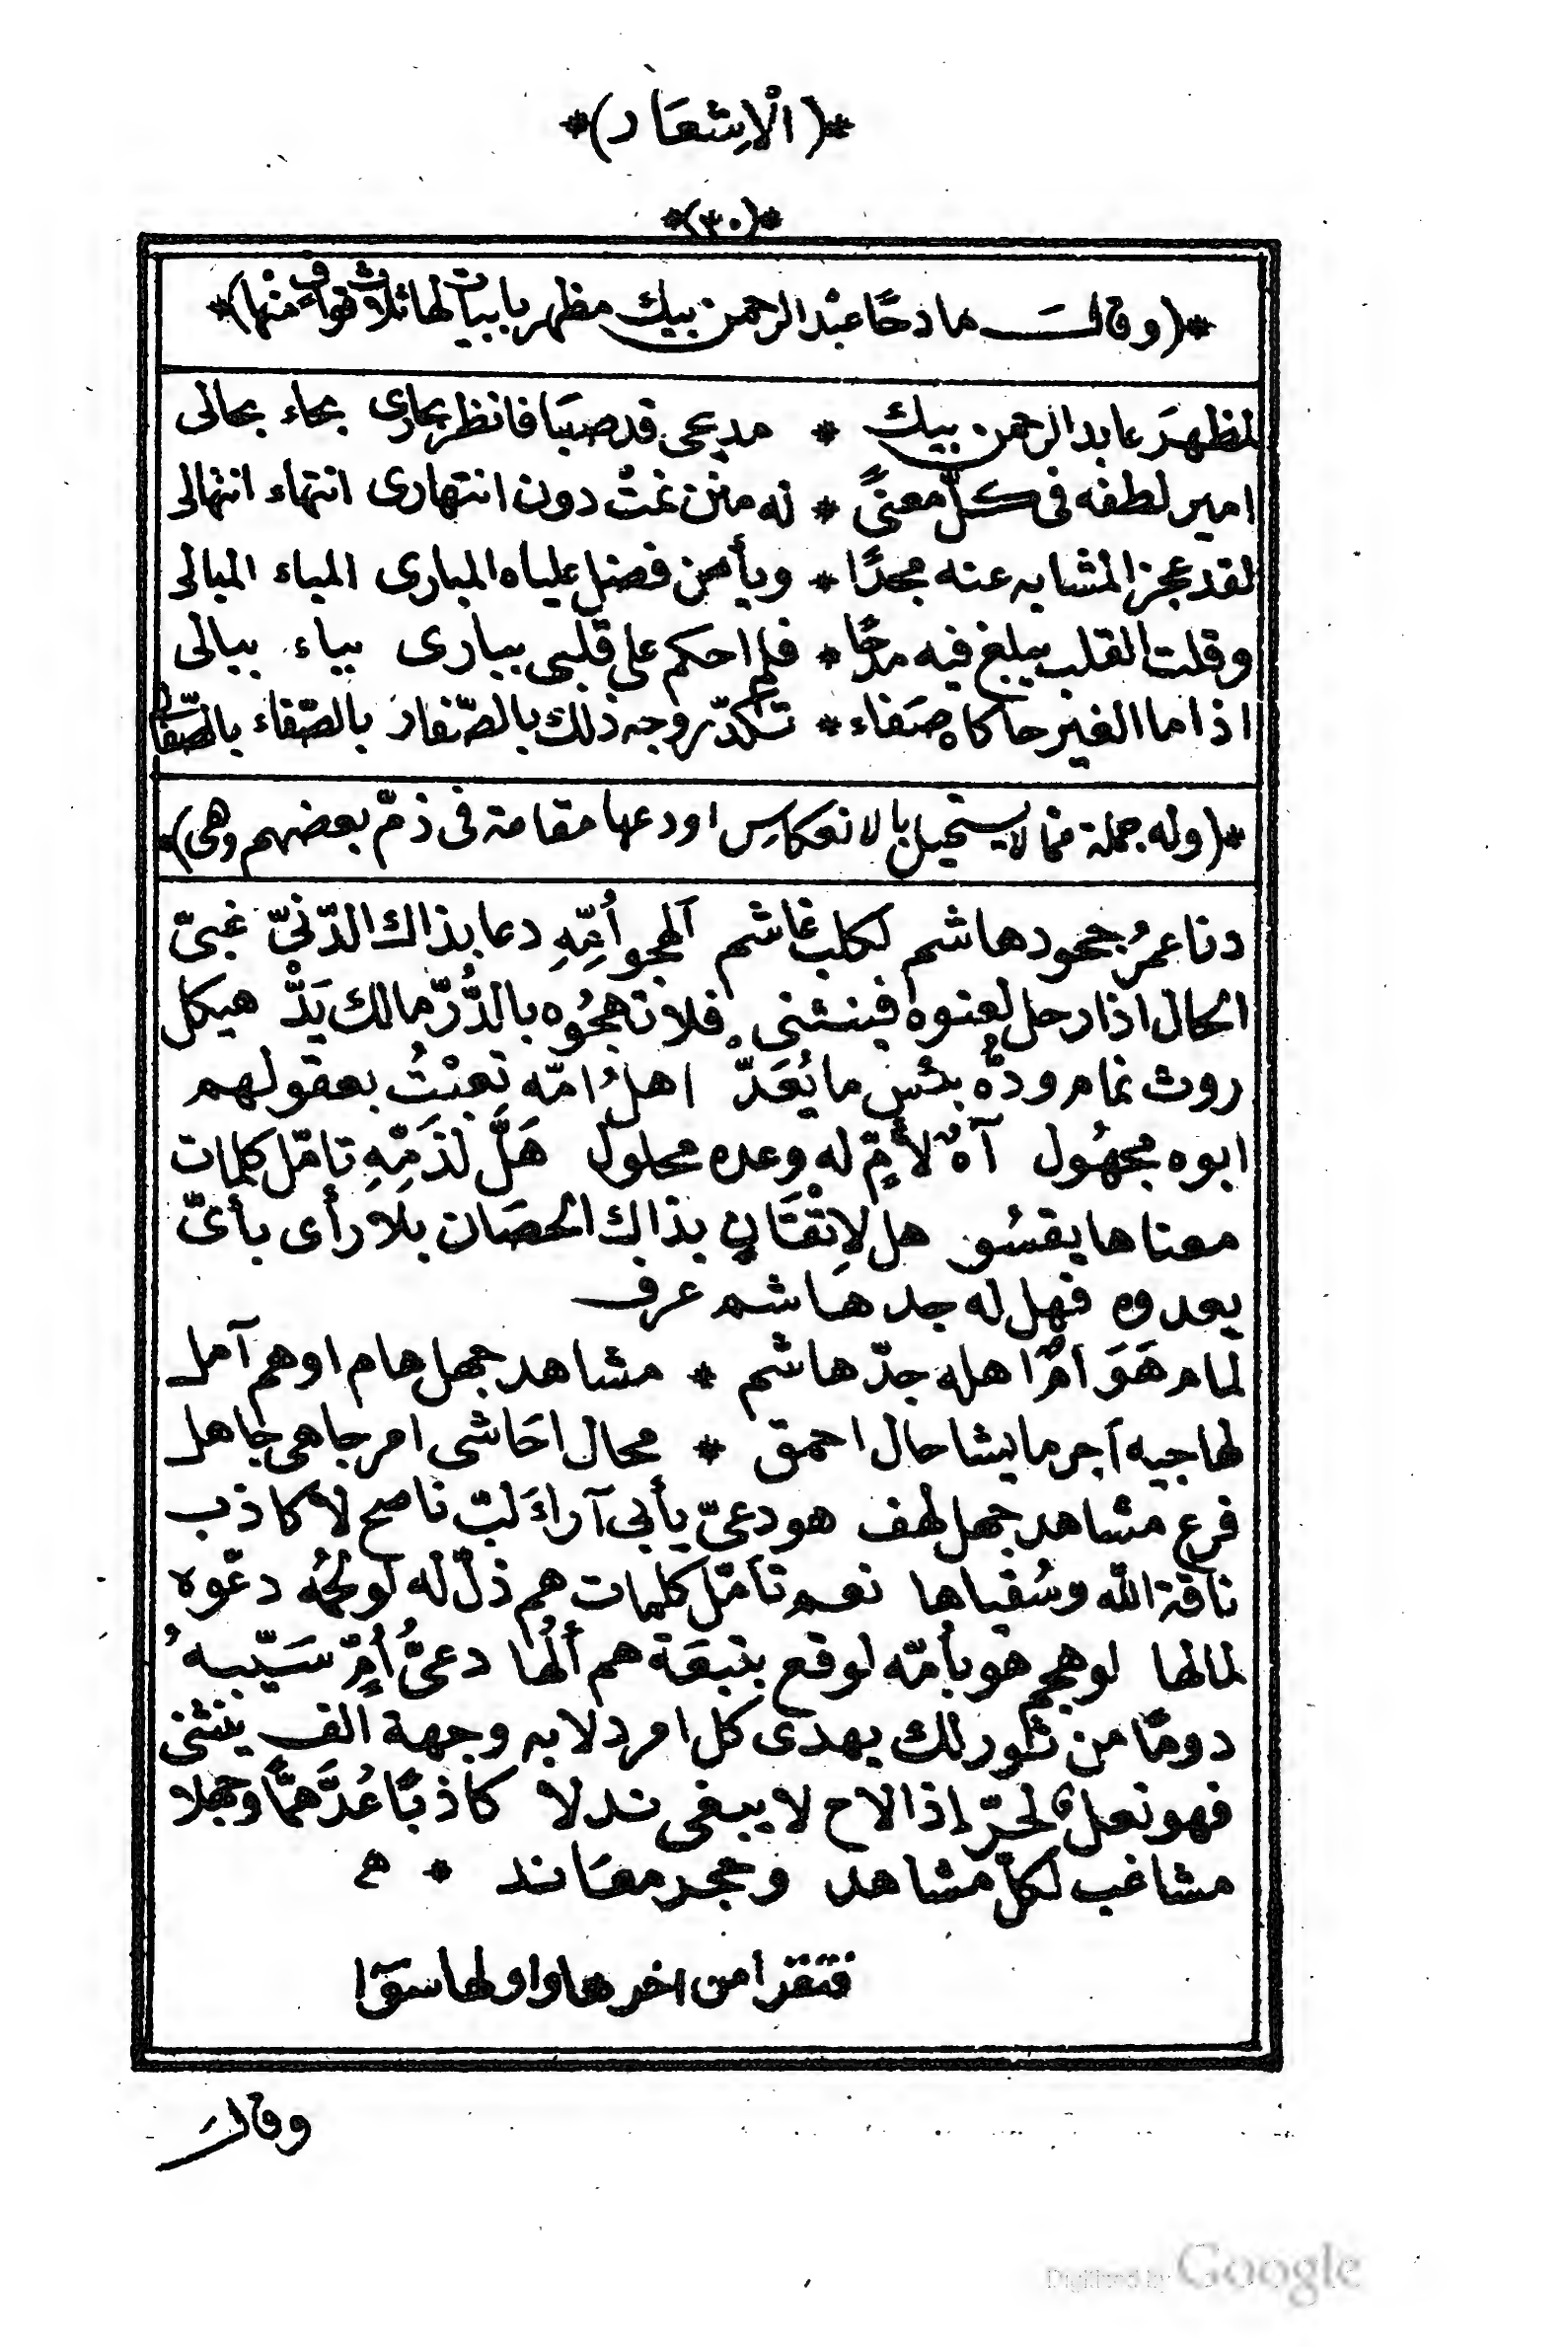 *(الْاِشعَار)*
*(٣٠)*
*(وقالــــ مادحًا عبْدالرحمن بيك مظهر بابيات لها ثلاث قواف منْها)*
لمظهرَ عابد الرحمن بيك * مديحى قد صبَا فانظر بحارى بحاء بحالى
امير لطفه فى كلّ معنىً * له منن نمتْ دون انتهارى انتهاء انتهالى
لقد عجز المشابه عنه مجدًا * ويأمن فضل علياه المبارى المباء المبالى
وقلت القلب يبلغ فيه مدحًا * فلم احكم على قلبى ببارى بباء ببالى
اذا ما الغير حاكاه صَفاء * تكدّر وجه ذلك بالصّفار بالصّفاء بالصّفال
*(وله جملة ممّا لا يستحيل بالانعكاس اودعها مقامة فى ذمّ بعضهم وهى)*
دنا عمرُ جحود هاشم لكلب غاشم آلهجو اُمِّهِ دعا بذاك الدّنىّ غبىّ
الحال اذا رحل لعنوه فينثنى فلا تهجُوه بالدُّرّ مالك يَدٌ هيكل
روث نمام ودّه بئس ما يُعَدّ اهلُ امّه تعبثُ بعقولهم
ابوه مجهُول آهٌ لأمّ له وعده محلول هَلَّ لذَمِّهِ تامّل كلمات
معناها يقسُو هل لاِتْقَانٍ بذاك الحصَان بلا رأى بأىّ
يعدوه فهل له جد هاشم عرف
لمام هَوَ امُّ اهله جدّ هاشم * مشاهد جهل هام او هم آمل
لهاجيه آجر ما يشا حال احمق * محال احَاشى امر جاهى جاهل
فرع مشاهد جهل لهف هو دعىّ يأبى آراءَ لبّ ناصح لا كاذب
ناقة الله وسُقياها نعم تأمّل كلمات هم ذلّ له لو لجُّه دعّوه
لمالها لو هجم هو بأمّه لوقع بتبعَة هم اَلُها دعىُّ اُمِّ سَيّبهُ
دومًا من ثور لك يهدى كل امرد لا به وجهة الف ينثنى
فهو نعل لحرّ إذا لاح لا يبغى ندلا كاذبًا عُدَّ همًّا وجهلا
مشاغب لكلّ مشاهد وعجر معَاند * ﻫ
فتقرأ من اخرها واولها سوَآ
وقالــ
Digitized by Google